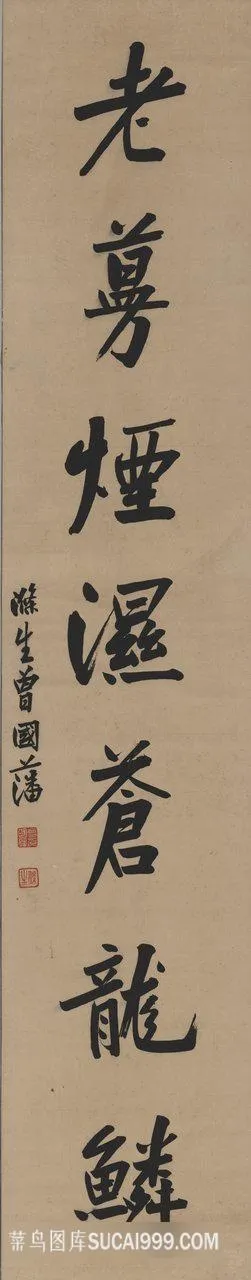 老蔓煙濕蒼龍鱗
滌生曾國藩
菜鸟图库SUCAI999.COM